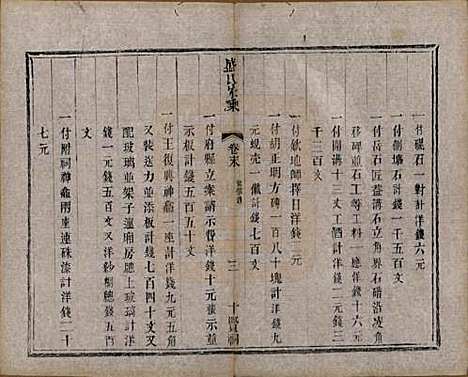 一付硯石一對計洋錢六元
一付側墻石計錢一千五百文
一付岳石匠蓋溝石立角界石碏沿淩角
移碑並石工等工料一應洋錢四元
一付開溝十三丈工計洋錢三元計錢三
千三百文
一付欽地師擇日洋錢二元
一付胡正明方磚一百八十塊計洋錢九
元規売一㒒計錢七百文
盛氏家乘
卷末
三
十賢祠
一付府縣立案請示費洋錢十元張示董
示板計錢五百文
一付王復興神龕一座計洋錢九元五角
又裝送力並添板計錢七百四十文又
配玻璃並架子蓮廂房壋上玻璃計洋
錢一元錢五百五十文又鈔櫥錢五百
文
一付附祠神龕兩座連硃漆計洋錢二十
七元